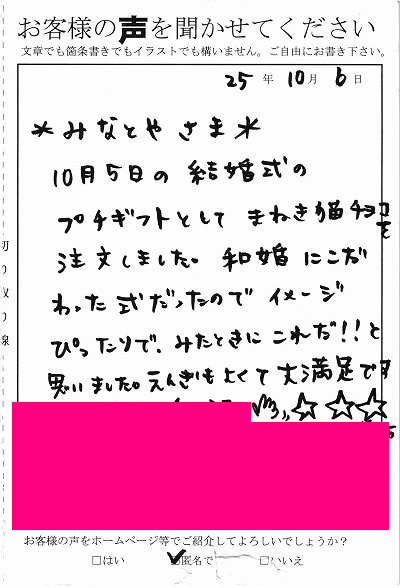 お客様の声を聞かせてください
文章でも箇条書きでもイラストでも構いません。ご自由にお書き下さい。
25年10月6日
*みなとやさま*
10月5日の結婚式の
プチギフトとしてまねき猫チョコを
注文しました。和婚にこだ
わった式だったのでイメージ
ぴったりで、みたときにこれだ!!と
思いました。えんぎもよくて大満足です
☆☆☆
切り取り線
お客様の声をホームページ等でご紹介してよろしいでしょうか?
□はい ☑匿名で □いいえ